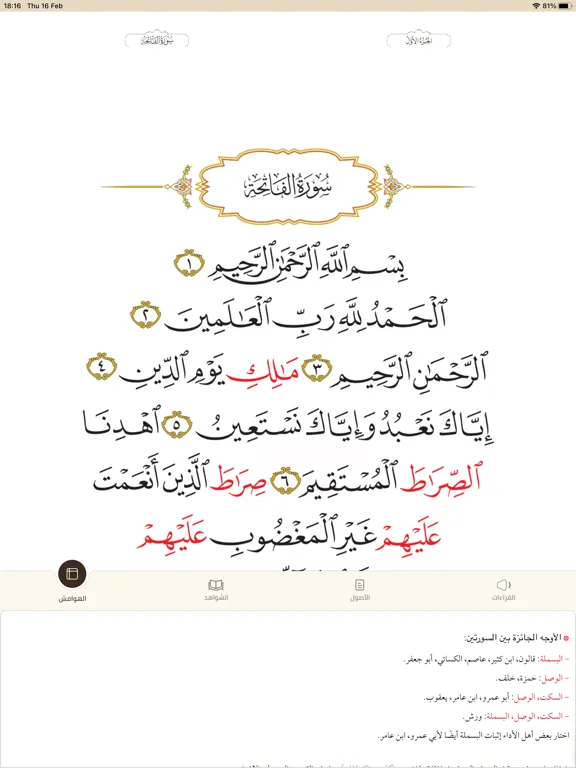 18:16 Thu 16 Feb 81%
الجزء الأول
سورة الفاتحة
سُورَةُ الفَاتِحَةِ
بِسْمِ ٱللَّهِ ٱلرَّحْمَٰنِ ٱلرَّحِيمِ ١
ٱلْحَمْدُ لِلَّهِ رَبِّ ٱلْعَٰلَمِينَ ٢
ٱلرَّحْمَٰنِ ٱلرَّحِيمِ ٣ مَٰلِكِ يَوْمِ ٱلدِّينِ ٤
إِيَّاكَ نَعْبُدُ وَإِيَّاكَ نَسْتَعِينُ ٥ ٱهْدِنَا
ٱلصِّرَٰطَ ٱلْمُسْتَقِيمَ ٦ صِرَٰطَ ٱلَّذِينَ أَنْعَمْتَ
عَلَيْهِمْ غَيْرِ ٱلْمَغْضُوبِ عَلَيْهِمْ
القراءات
الأصول
الشواهد
الهوامش
الأوجه الجائزة بين السورتين:
– البسملة: قالون، ابن كثير، عاصم، الكسائي، أبو جعفر.
– الوصل: حمزة، خلف.
– السكت، الوصل: أبو عمرو، ابن عامر، يعقوب.
– السكت، الوصل، البسملة: ورش.
اختار بعض أهل الأداء إثبات البسملة أيضًا لأبي عمرو، ابن عامر.